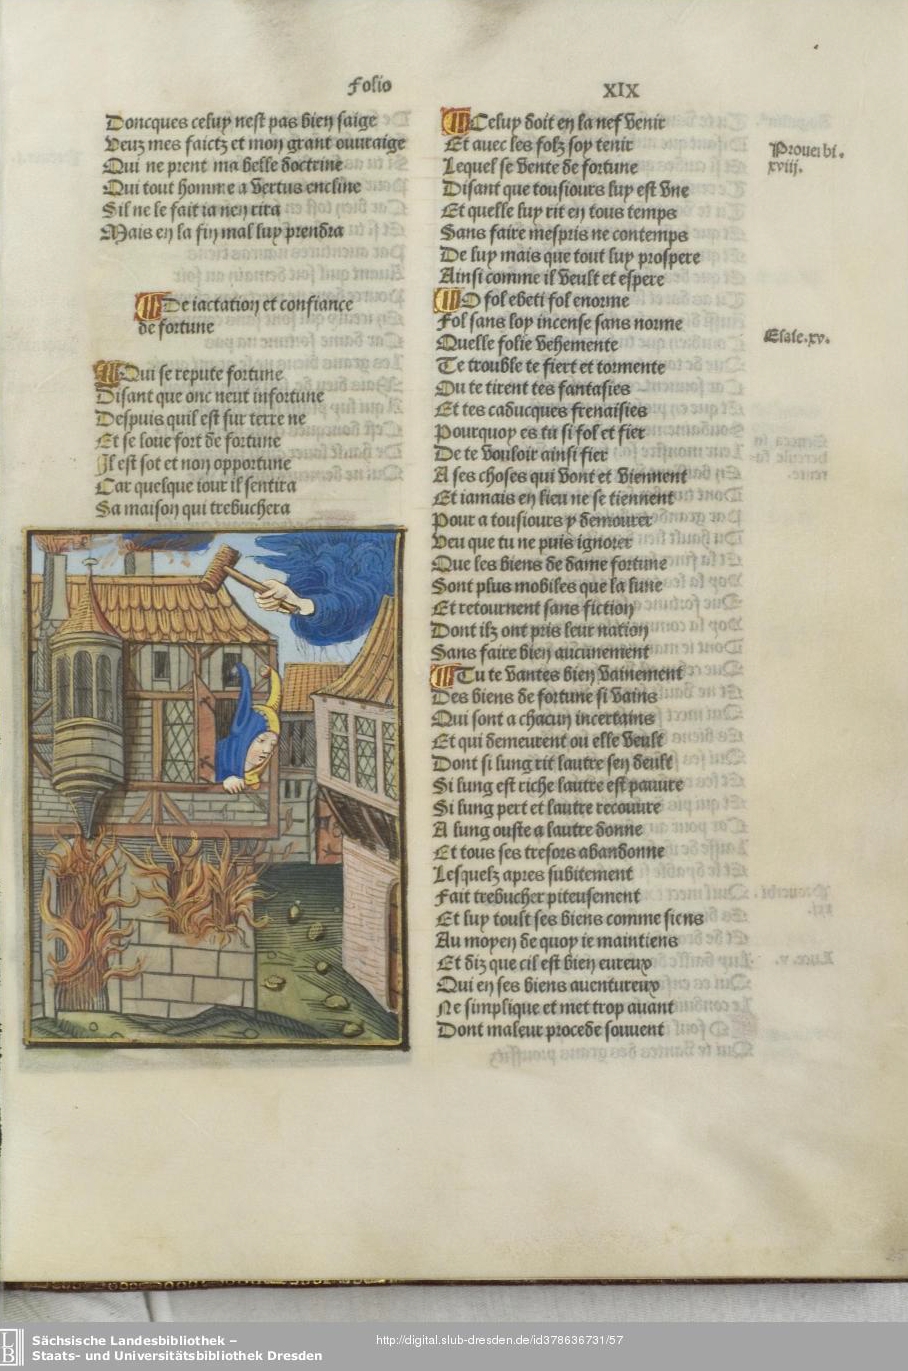 Folio
XIX
Doncques celuy nest pas bien saige
Veuz mes faictz et mon grant ouuraige
Qui ne prent ma belle doctrine
Qui tout homme a vertus encline
Sil ne le fait ia nen rira
Mais en la fin mal luy prendra
De iactation et confiance
de fortune
Qui se repute fortune
Disant que onc neut infortune
Despuis quil est sur terre ne
Et se loue fort de fortune
Il est sot et non opportune
Car quelque iour il sentira
Sa maison qui trebuchera
Celuy doit en la nef venir
Et auec les folz soy tenir
Lequel se vente de fortune
Disant que tousiours luy est vne
Et quelle luy rit en tous temps
Sans faire mespris ne contemps
De luy mais que tout luy prospere
Ainsi comme il veult et espere
O fol ebeti fol enorme
Fol sans loy incense sans norme
Quelle folie vehemente
Te trouble te fiert et tormente
Ou te tirent tes fantasies
Et tes caducques frenaisies
Pourquoy es tu si fol et fier
De te vouloir ainsi fier
A ses choses qui vont et viennent
Et iamais en lieu ne se tiennent
Pour a tousiours y demourer
Veu que tu ne puis ignorer
Que les biens de dame fortune
Sont plus mobiles que la lune
Et retournent sans fiction
Dont ilz ont pris leur nation
Sans faire bien aucunement
Tu te vantes bien vainement
Des biens de fortune si vains
Qui sont a chacun incertains
Et qui demeurent ou elle veult
Dont si lung rit lautre sen deult
Si lung est riche lautre est pauure
Si lung pert et lautre recouure
A lung ouste a lautre donne
Et tous ses tresors abandonne
Lesquelz apres subitement
Fait trebucher piteusement
Et luy toult ses biens comme siens
Au moyen de quoy ie maintiens
Et diz que cil est bien eureux
Qui en ses biens auentureux
Ne simplique et met trop auant
Dont maleur procede souuent
Prouerbi.
xviij.
Esaie.xv.
Sächsische Landesbibliothek –
Staats- und Universitätsbibliothek Dresden
http://digital.slub-dresden.de/id378636731/57